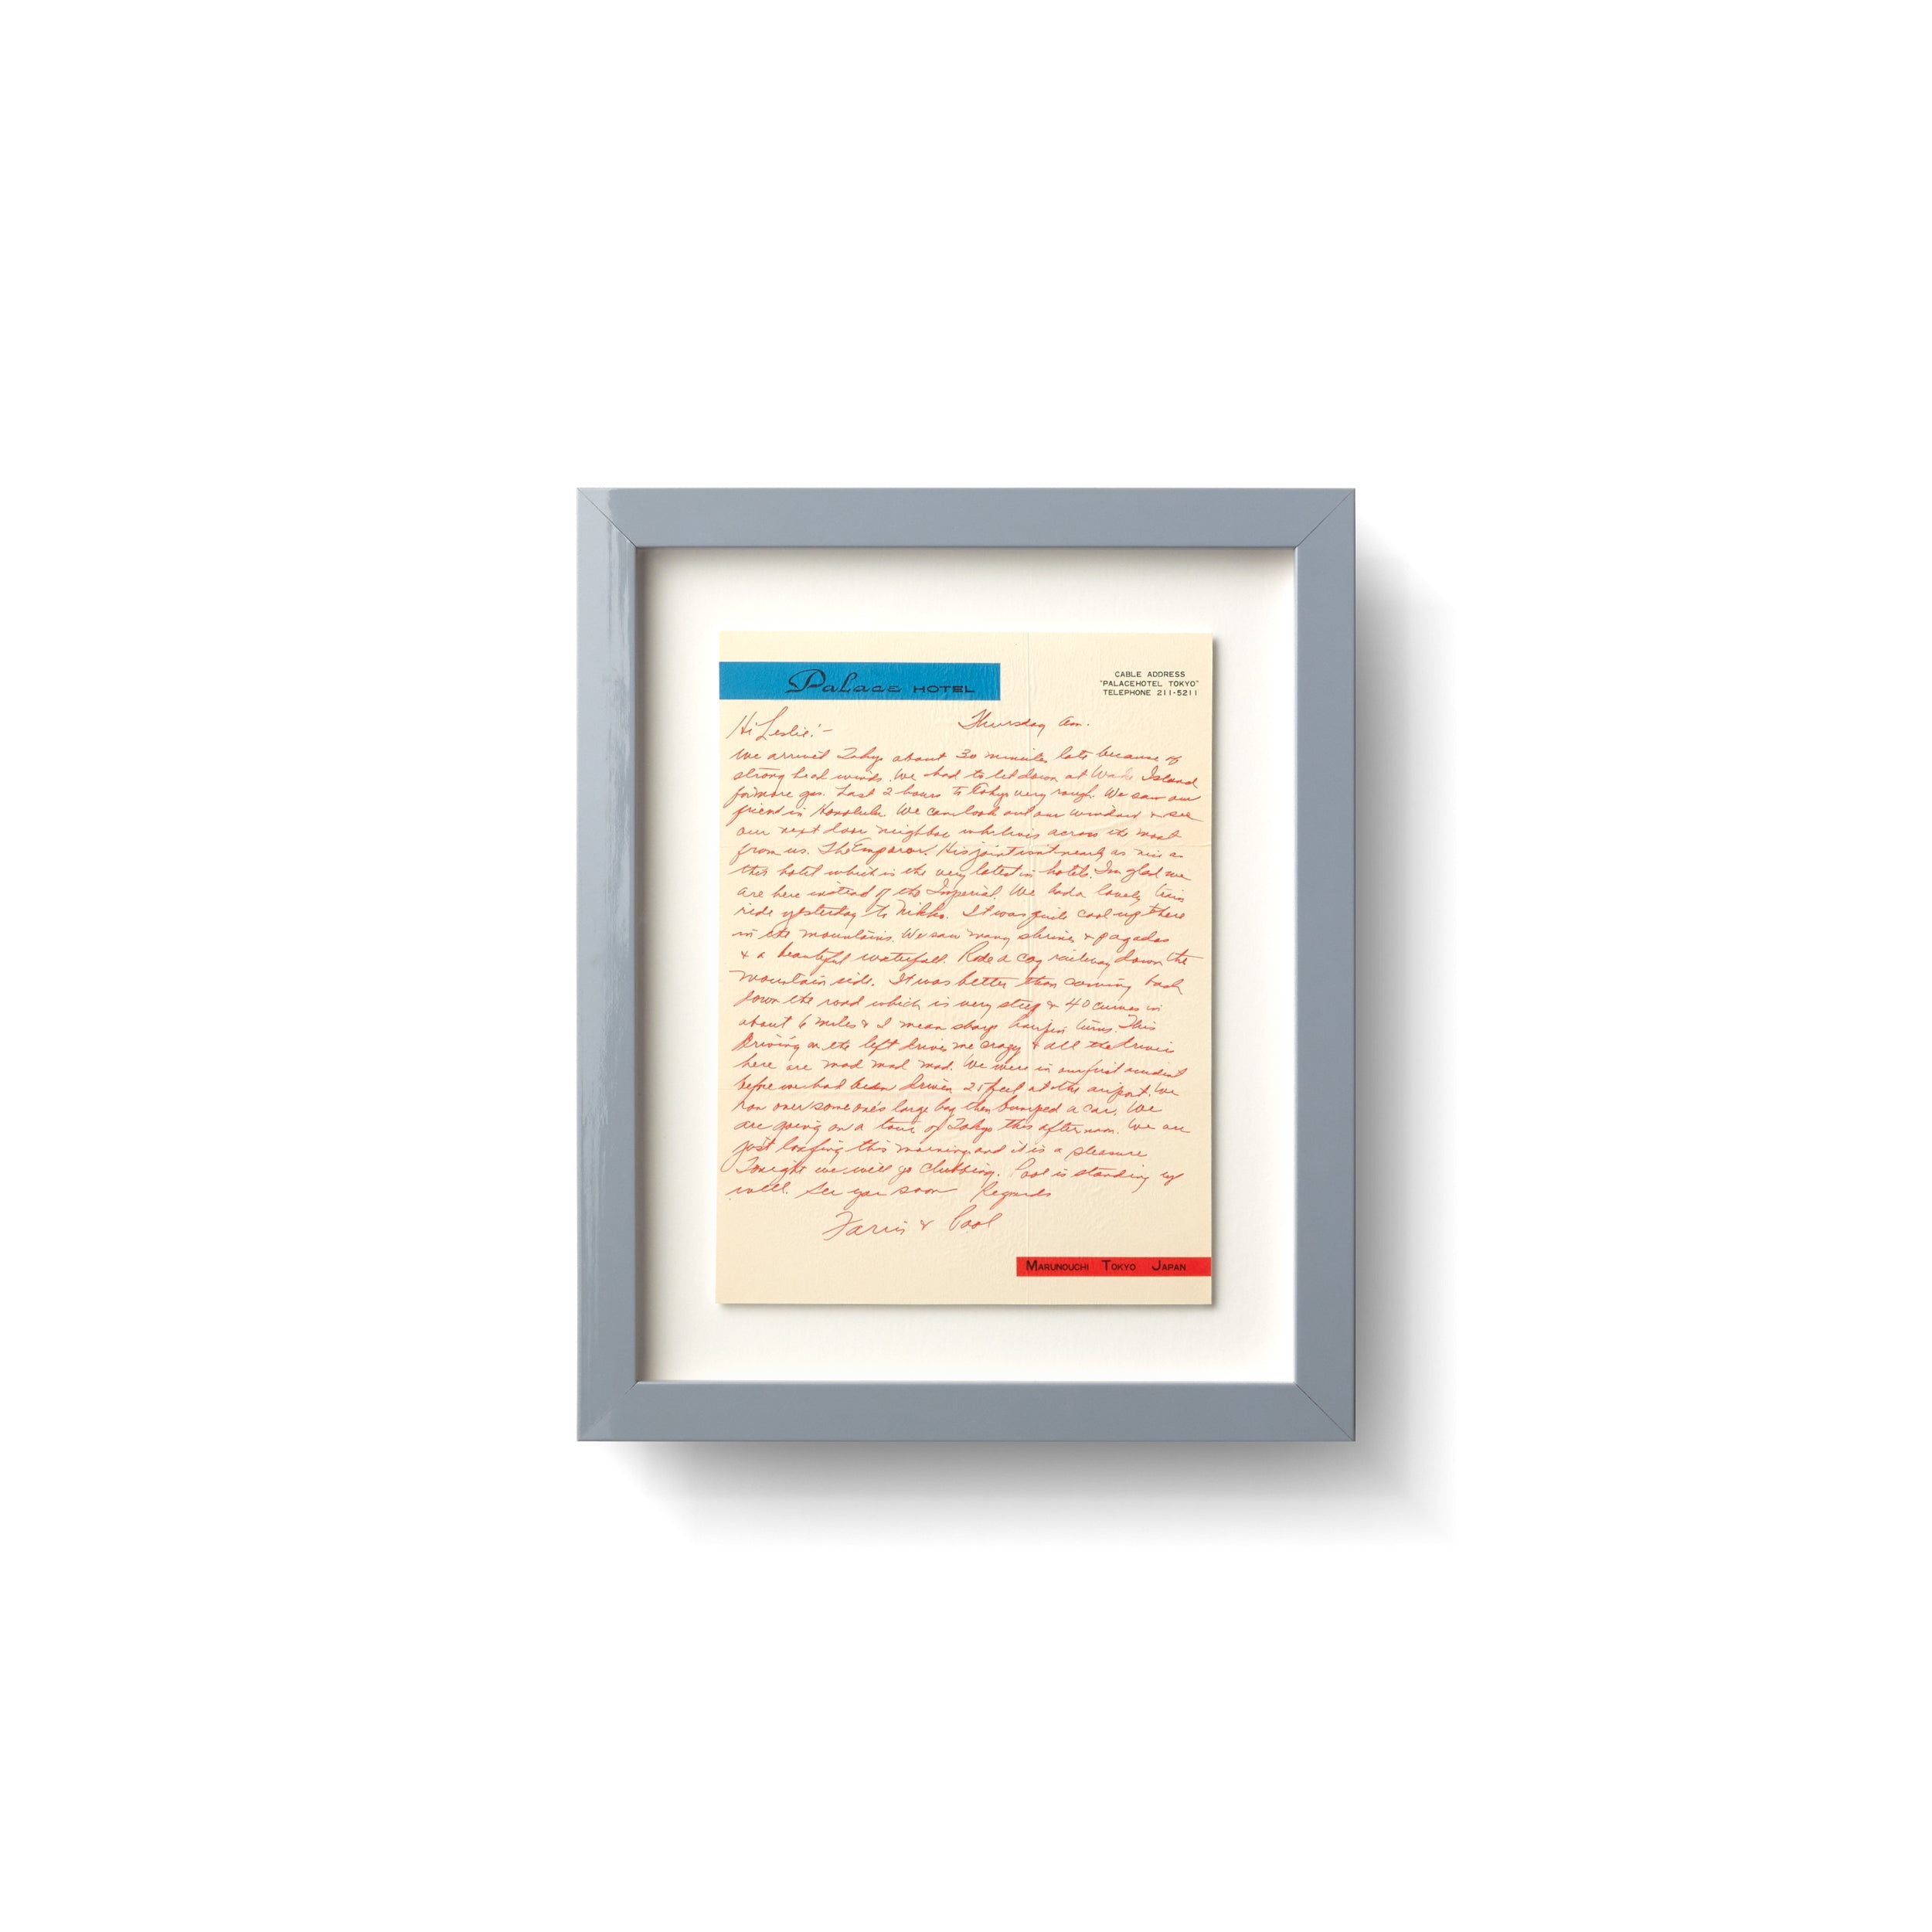 Palace HOTEL
CABLE ADDRESS
"PALACEHOTEL TOKYO"
TELEPHONE 211-5211
Hi Leslie! - Thursday am.
We arrived Tokyo about 30 minutes late because of
strong head winds. We had to let down at Wake Island
for more gas. Last 2 hours to Tokyo very rough. We saw our
friend in Honolulu. We can look out our window & see
our next door neighbor who lives across the moat
from us. The Emperor. His joint isn't nearly as nice as
this hotel which is the very latest in hotels. I'm glad we
are here instead of the Imperial. We had a lovely train
ride yesterday to Nikko. It was quite cool up there
in the mountains. We saw many shrines & pagodas
& a beautiful waterfall. Rode a cog railway down the
mountain side. It was better than coming back
down the road which is very steep & 40 curves in
about 6 miles & I mean sharp hairpin turns. This
Driving on the left drives me crazy & all the drivers
here are mad mad mad. We were in our first accident
before we had been driven 25 feet at the airport. We
ran over someone's large bag then bumped a car. We
are going on a tour of Tokyo this afternoon. We are
just loafing this morning and it is a pleasure
Tonight we will go clubbing. Pool is standing up
well. See you soon Regards
Farris & Pool
MARUNOUCHI TOKYO JAPAN